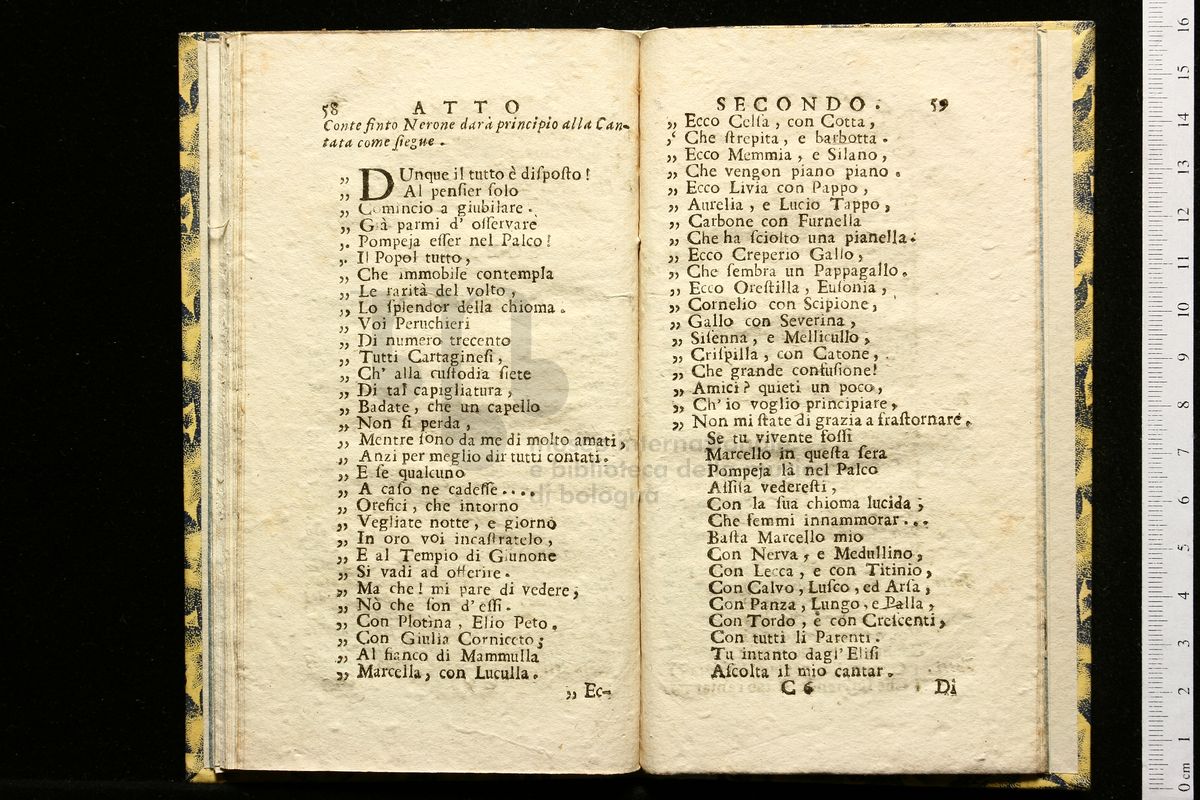 58 ATTO
Conte finto Nerone darà principio alla Can-
tata come ſiegue.
„ DUnque il tutto è diſpoſto!
„ Al penſier ſolo
„ Comincio a giubilare.
„ Già parmi d' oſſervare
„ Pompeja eſſer nel Palco!
„ Il Popol tutto,
„ Che immobile contempla
„ Le rarità del volto,
„ Lo ſplendor della chioma.
„ Voi Peruchieri
„ Di numero trecento
„ Tutti Cartagineſi,
„ Ch' alla cuſtodia ſiete
„ Di tal capigliatura,
„ Badate, che un capello
„ Non ſi perda,
„ Mentre ſono da me di molto amati,
„ Anzi per meglio dir tutti contati.
„ E ſe qualcuno
„ A caſo ne cadeſſe....
„ Orefici, che intorno
„ Vegliate notte, e giorno
„ In oro voi incaſtratelo,
„ E al Tempio di Giunone
„ Si vadi ad offerire.
„ Ma che! mi pare di vedere;
„ Nò che ſon d' eſſi.
„ Con Plotina, Elio Peto.
„ Con Giulia Corniceto;
„ Al fianco di Mammulla
„ Marcella, con Luculla.
„ Ec-
SECONDO. 59
„ Ecco Celſa, con Cotta,
„ Che ſtrepita, e barbotta.
„ Ecco Memmia, e Silano,
„ Che vengon piano piano.
„ Ecco Livia con Pappo,
„ Aurelia, e Lucio Tappo,
„ Carbone con Furnella
„ Che ha ſciolto una pianella.
„ Ecco Creperio Gallo,
„ Che ſembra un Pappagallo.
„ Ecco Oreſtilla, Euſonia,
„ Cornelio con Scipione,
„ Gallo con Severina,
„ Siſenna, e Mellicullo,
„ Criſpilla, con Catone,
„ Che grande confuſione!
„ Amici? quieti un poco,
„ Ch' io voglio principiare,
„ Non mi ſtate di grazia a fraſtornare.
Se tu vivente foſſi
Marcello in queſta ſera
Pompeja là nel Palco
Aſſiſa vedereſti,
Con la ſua chioma lucida;
Che femmi innammorar...
Baſta Marcello mio
Con Nerva, e Medullino,
Con Lecca, e con Titinio,
Con Calvo, Luſco, ed Arſa,
Con Panza, Lungo, e Palla,
Con Tordo, e con Creſcenti,
Con tutti li Parenti.
Tu intanto dagl' Eliſi
Aſcolta il mio cantar.
C 6 Di